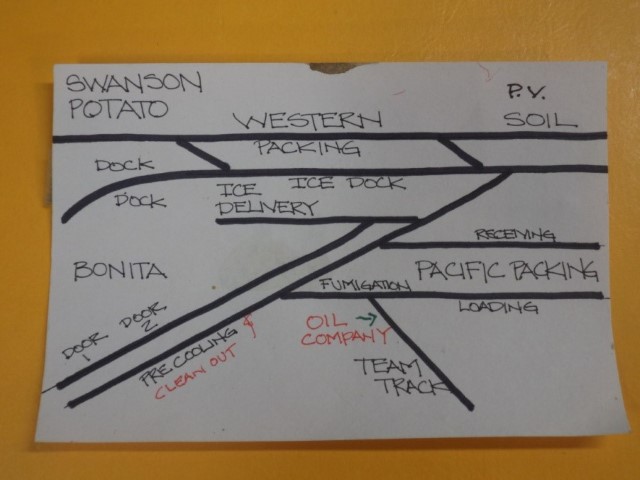 SWANSON
POTATO
WESTERN
PACKING
P.V.
SOIL
DOCK
DOCK
ICE
DELIVERY
ICE DOCK
RECEIVING
BONITA
PACIFIC PACKING
FUMIGATION
LOADING
DOOR
1
DOOR
2
PRE COOLING &
CLEAN OUT
OIL
COMPANY
TEAM
TRACK